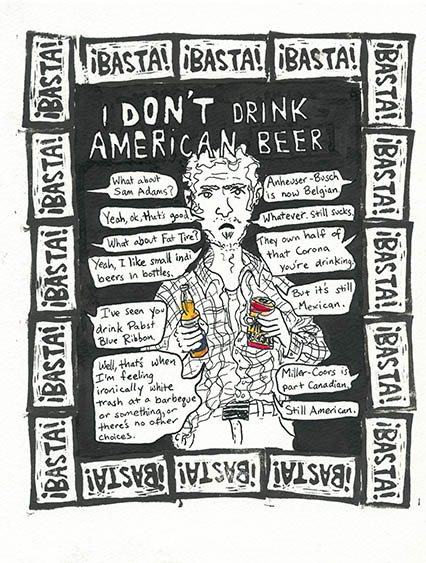 ¡BASTA!
¡BASTA!
¡BASTA!
¡BASTA!
¡BASTA!
I DON'T DRINK
AMERICAN BEER
What about
Sam Adams?
Yeah, ok, that's good
What about Fat Tire?
Yeah, I like small indi
beers in bottles.
I've seen you
drink Pabst
Blue Ribbon.
Well, that's when
I'm feeling
ironically white
trash at a barbeque
or something, or
there's no other
choices.
Anheuser-Busch
is now Belgian.
Whatever. Still sucks.
They own half of
that Corona
you're drinking.
But it's still
Mexican.
Miller-Coors is
part Canadian.
Still American.
¡BASTA!
¡BASTA!
¡BASTA!
¡BASTA!
¡BASTA!
¡BASTA!
¡BASTA!
¡BASTA!
¡BASTA!